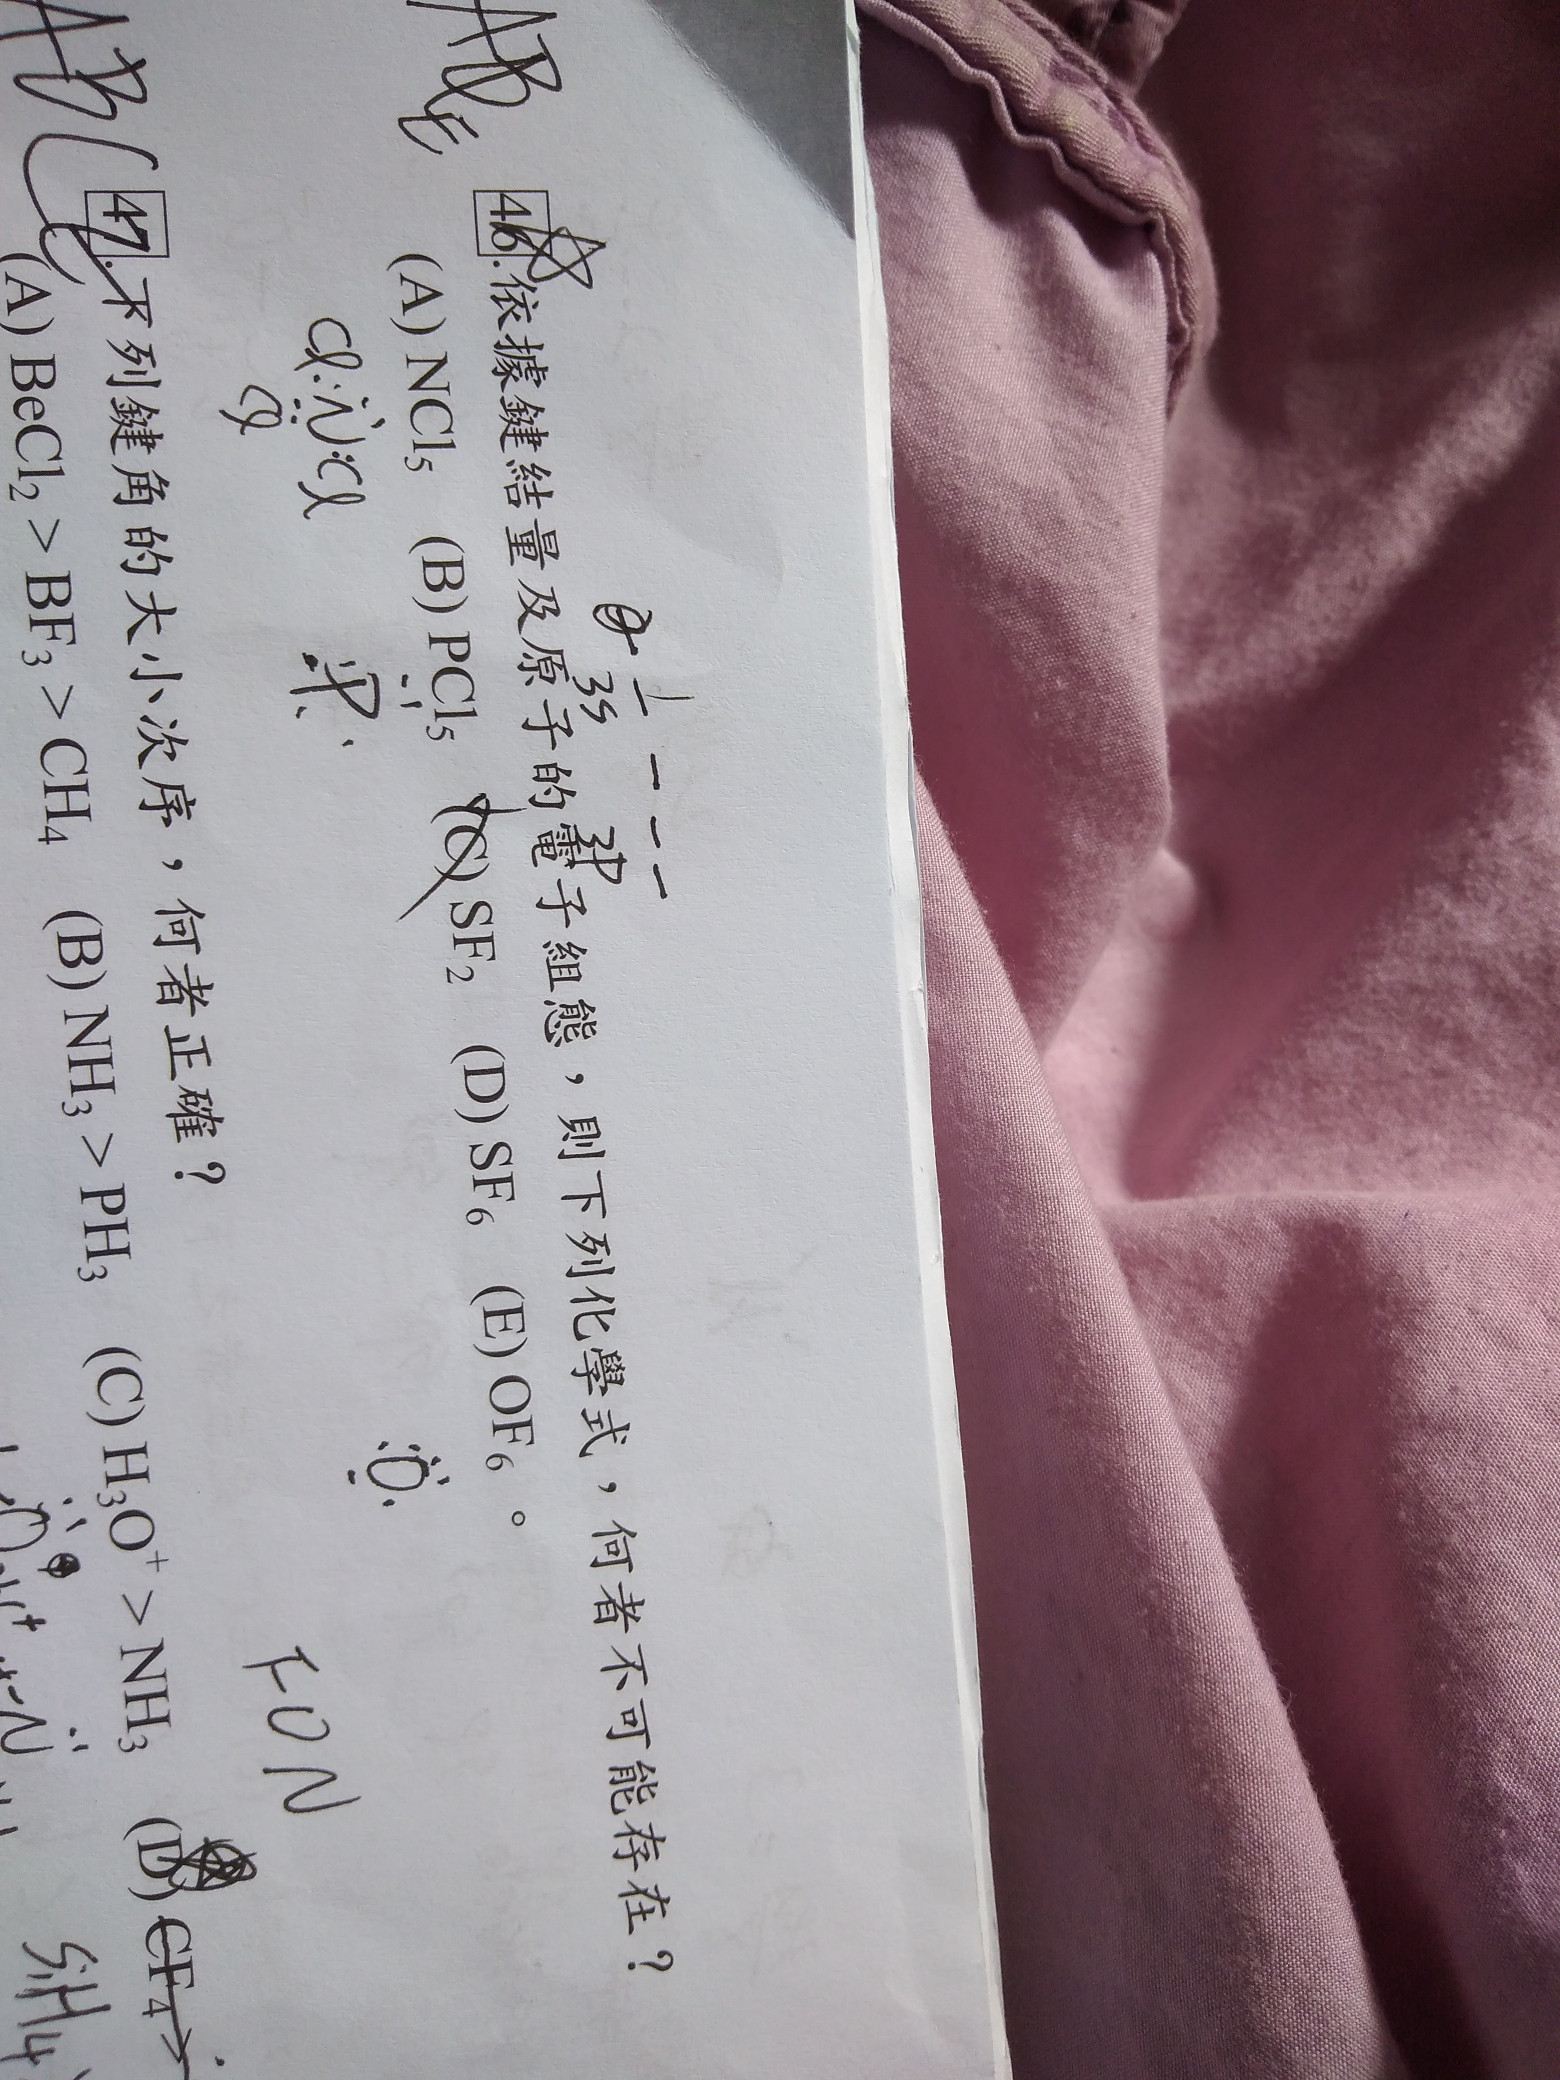 3s 3p
ABE
46.依據鍵結量及原子的電子組態，則下列化學式，何者不可能存在？
(A) NCl₅ (B) PCl₅ (C) SF₂ (D) SF₆ (E) OF₆。
Cl:N:Cl P O
Cl
FON
ABC
47.下列鍵角的大小次序，何者正確？
(A) BeCl₂ > BF₃ > CH₄ (B) NH₃ > PH₃ (C) H₃O⁺ > NH₃ (D) CF₄ >
SiH₄